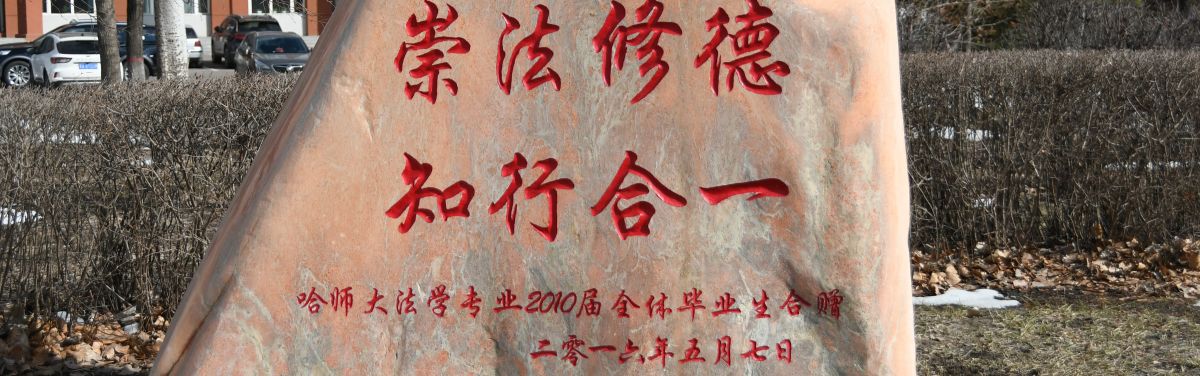 崇法修德
知行合一
哈师大法学专业2010届全体毕业生合赠
二零一六年五月七日